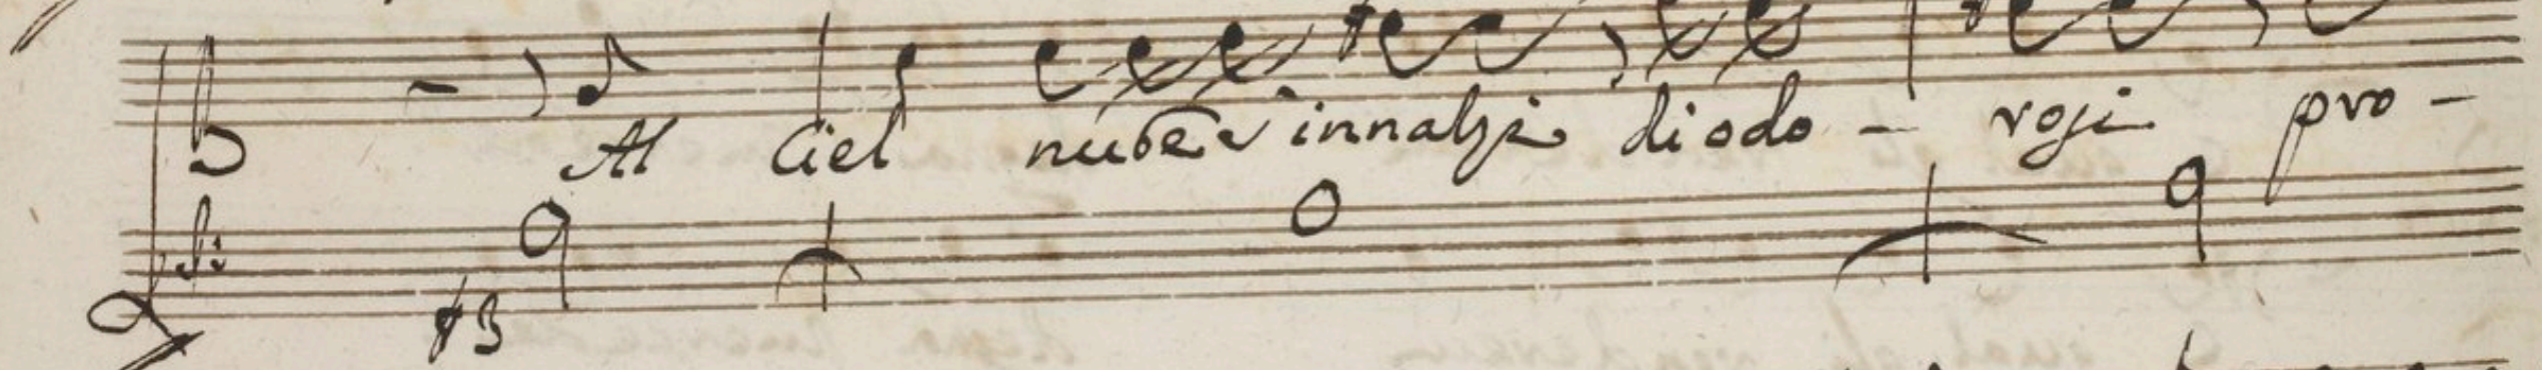 Al Ciel nube s'innalzi di odo - rosi pro -
♯3